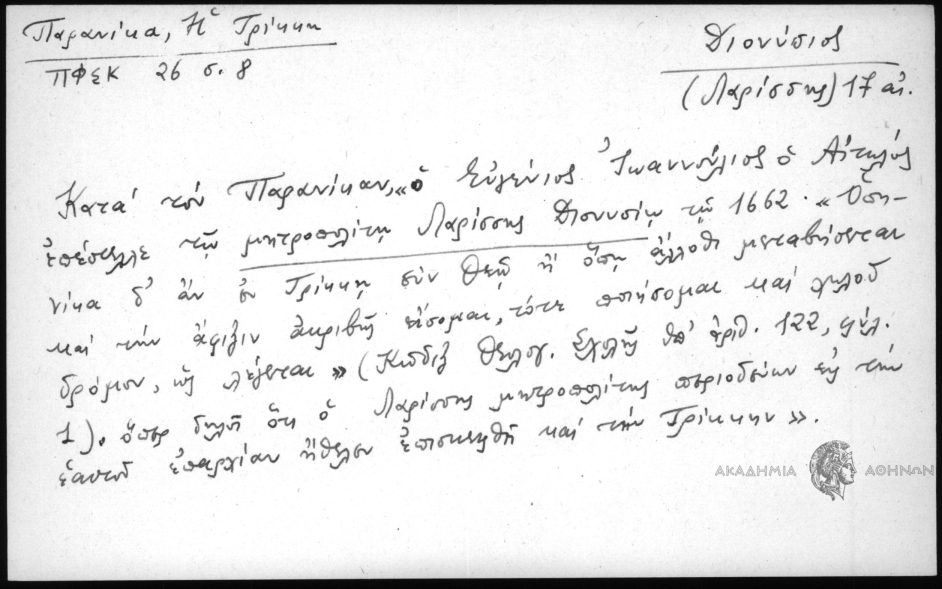 Παρανίκα, Ἡ Τρίκκη
ΠΦΣΚ 26 σ. 8
Διονύσιος
(Λαρίσσης) 17 αἰ.
Κατά τόν Παρανίκαν, «ὁ Εὐγένιος Ἰωαννούλιος ὁ Αἰτωλός
ἐπέστελλε τῷ μητροπολίτῃ Λαρίσσης Διονυσίῳ τῷ 1662. «Ὁπη-
νίκα δ' ἄν ἐν Τρίκκῃ σύν Θεῷ ἤ ὅπῃ ἄλλοθι μεταβήσεται
καί τήν ἄφιξιν ἀκριβῆ εἴσομαι, τότε ποιήσομαι καί χωλοῦ
δρόμον, ὥς λέγεται» (Κῶδιξ Θεολογ. Σχολῆς ὑπ' ἀριθ. 122, φύλ.
1). ὅπερ δηλοῖ ὅτι ὁ Λαρίσσης μητροπολίτης περιοδεύων εἰς τήν
ἑαυτοῦ ἐπαρχίαν ἤθελεν ἐπισκεφθῆ καί τήν Τρίκκην».
ΑΚΑΔΗΜΙΑ ΑΘΗΝΩΝ